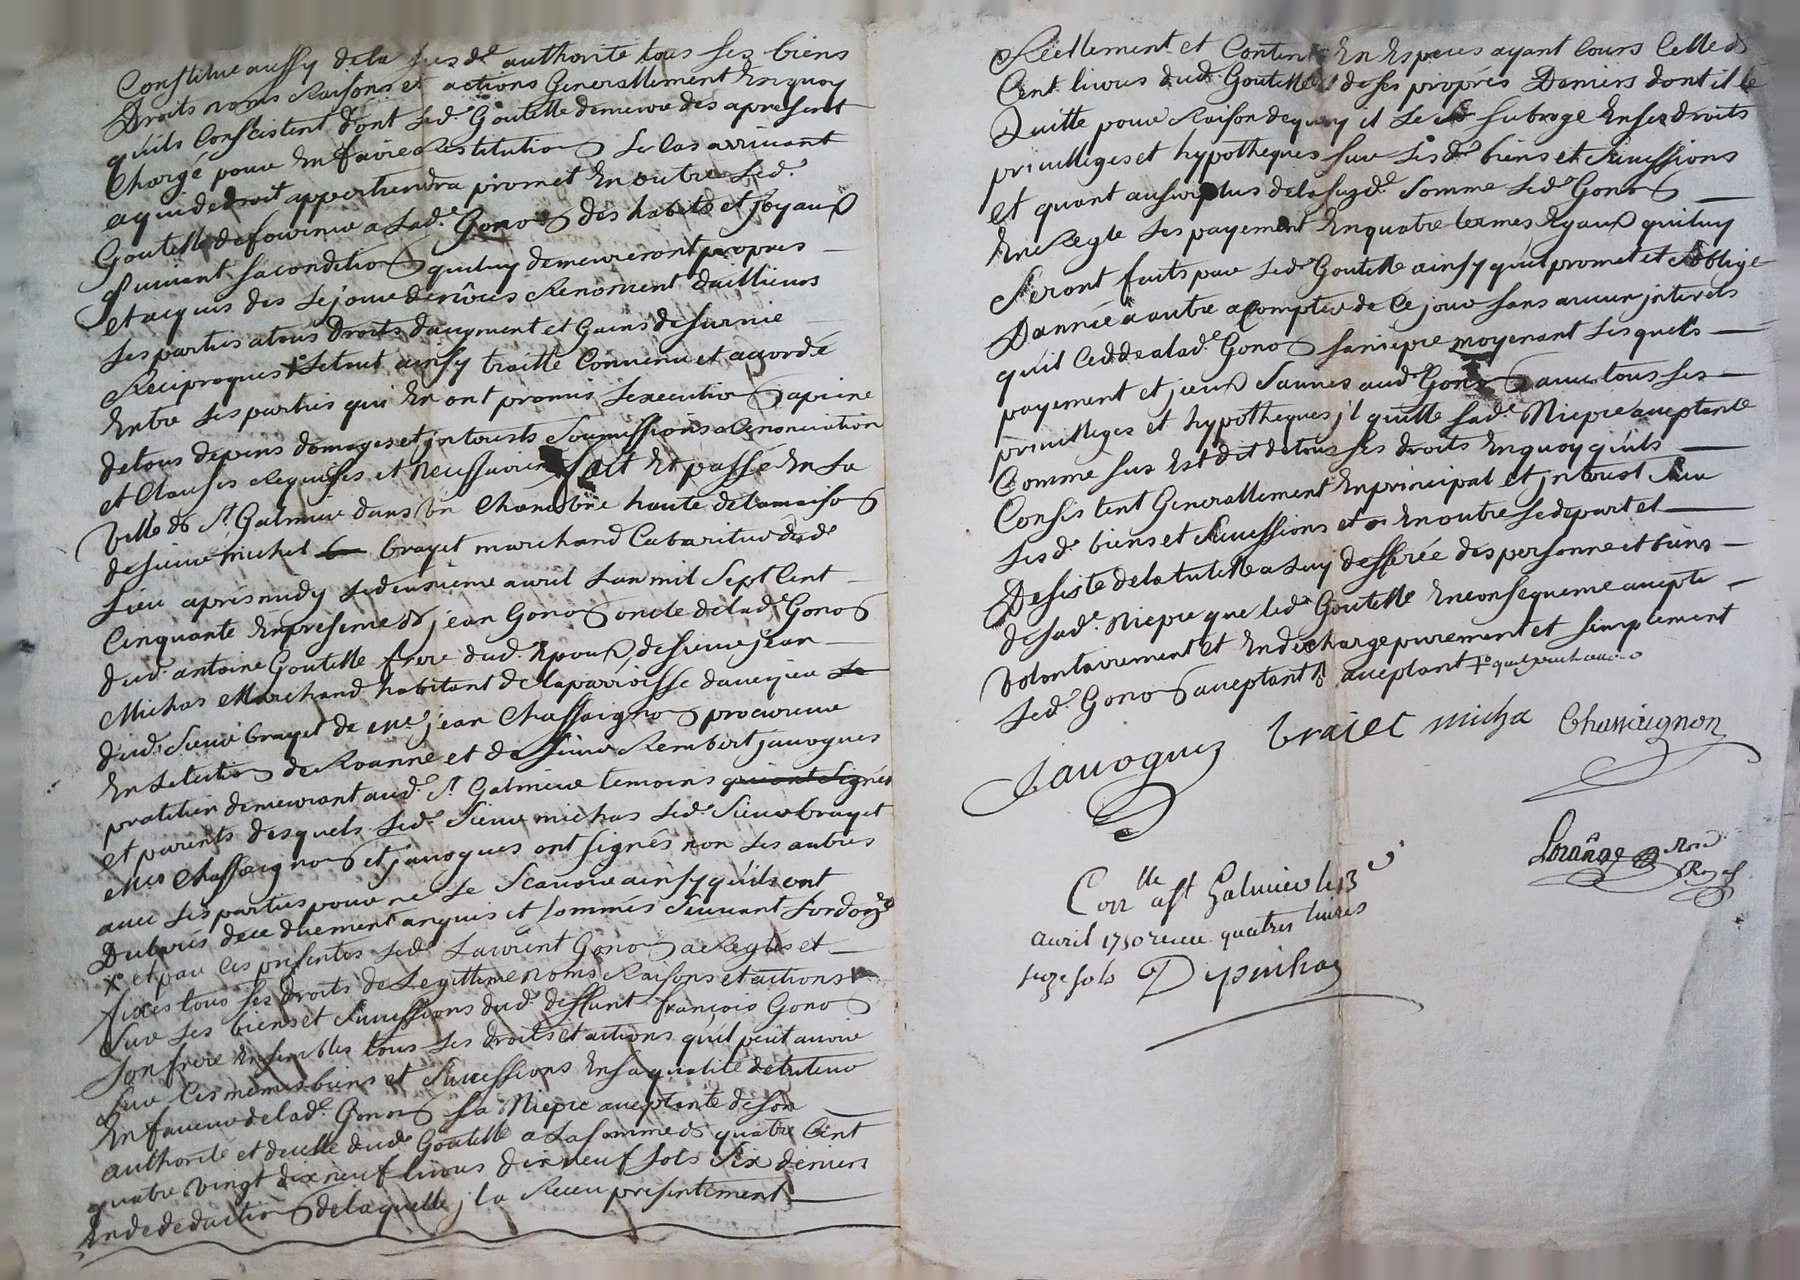 Constitue aussy de la susde authorite tous ses biens
Droits noms Raisons et actions Generallement En quoy
quils consistent dont Led. Goutelle demeure des apresent
Chargé pour En faire Restitution Le Cas arrivant
a qui de droit appertiendra promet En outre Led.
Goutelle de fournir a Lad.e Gonon des habits et Joyaux
suivant sa condition quil luy demeureront propres
et acquis des le jour de nôces Renoncent d'aillieurs
Les parties a tous Droits daugment et Gains de survie
Reciproques Le tout ainsy traitté Convenu et accordé
Entre Les parties qui En ont promis Lexecution a peine
de tous depens domages et jnterests soumissions Renonciation
et Clauses Requises et Necessaires fait Et passé En La
Ville de St Galmier dans Un Chambre haute de la maison
de sieur michel brayet marchand Cabaritier dud.
Lieu apres midy Le deuxieme avril L'an mil Sept Cent
Cinquante En presence de jean Gonon oncle de lad.e Gonon
dud. antoine Goutelle frere dud. Epoux, de sieur jean
Michas Marchand habitant de la parroisse daveyieu
dud. Sieur brayet de me. jean Chassaignon procureur
En Lelection de Roanne et de sieur Rembert javogues
praticien demeurant aud. St Galmier temoins qui ont signés
et parents desquels Led. Sieur michas Led. Sieur brayet
me. Chassaignon et javogues ont signés non Les autres
avec Les parties pour ne Le Scavoir ainsy quils ont
Declarés de ce duement enquis et sommés suivant Lordonce
X et par Ces presentes Led. Laurent Gonon a Reglés et
fixés tous ses droits de Legittime noms Raisons et actions
sur Les biens et successions dud. deffunt françois Gonon
son frere Ensembles tous Les droits et actions quil peut avoir
sur Les memes biens et successions En sa qualité de tuteur
En faveur de lad.e Gonon sa Niepce acceptante de son
authorité et de celle dud. Goutelle a La somme de quatre Cent
quatre vingt dix neuf livres dix neuf sols Six deniers
En dededuction de laquelle jl a Receu presentement
Réellement et Content En Especes ayant Cours Celle de
Cent livres dud. Goutelle de ses propres Deniers dont il le
Quitte pour Raison de quoy il Le subroge En ses droits
privilleges et hypotheques sur Lesd. biens et successions
et quant au surplus de la susde. Somme Led. Gonon
En Regle Les payement En quatre termes Egaux qui luy
Seront faits par Led. Goutelle ainsy quil promet et soblige
D'année a autre a Compter de Ce jour sans aucun jnterets
quil Cedde a lad.e Gonon sa niepce moyenant Lesquels
payement et jceux Sauves aud. Gonon avec tous ses
privilleges et hypotheques jl quitte sad.e Niepce aceptante
Comme sus Est dit de tous ses droits En quoy quils
Consistent Generallement En principal et jnterest Sur
Lesd. biens et successions et En outre se depart et
Desiste de la tutelle a Luy defferée des personne et biens
de sad.e Niepce que led. Goutelle En consequence accepte
volontairement et En decharge purement et simplement
Led. Gonon acceptant
Javogues brajet micha Chassaignon
Corlle a St Galmier le 13e
avril 1750 receu quatres livres
seze sols